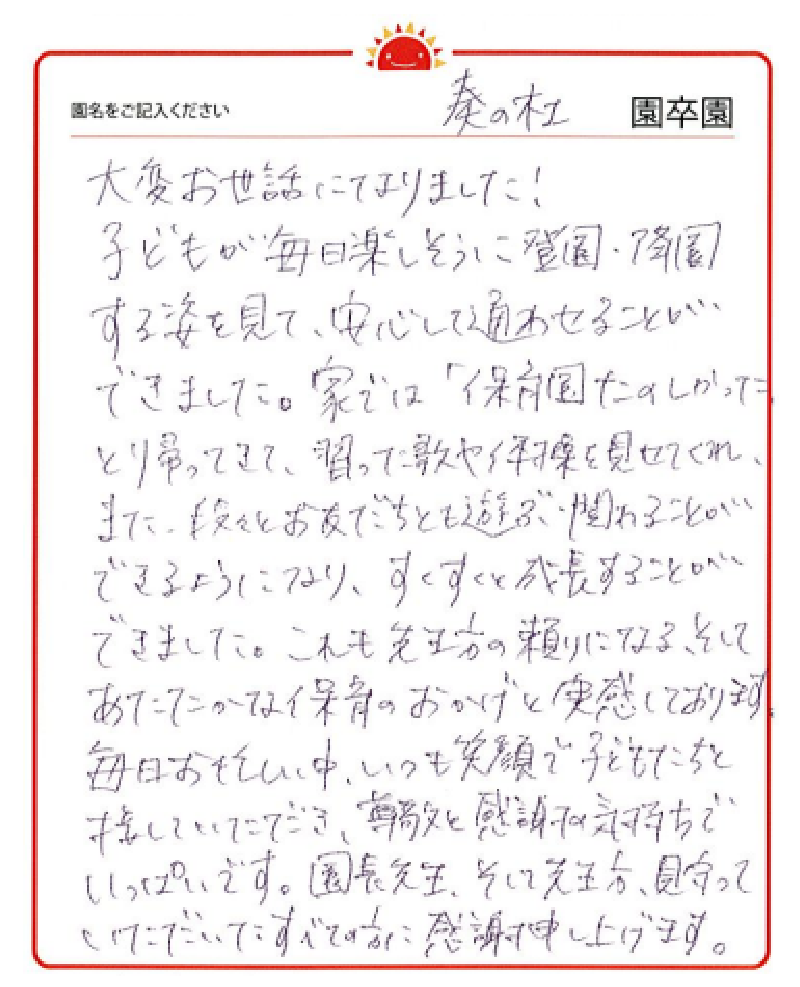 園名をご記入ください
奏の杜 園卒園
大変お世話になりました!
子どもが毎日楽しそうに登園・降園
する姿を見て、安心して通わせることが
できました。家では「保育園たのしかった
とり帰ってきて、習った歌や体操を見せてくれ、
また、段々とお友だちとも遊ぶ・関わることが
できるようになり、すくすくと成長することが
できました。これも先生方の頼りになる、そして
あたたかな保育のおかげと実感しております。
毎日お忙しい中、いつも笑顔で子どもたちと
接していただき、尊敬と感謝な気持ちで
いっぱいです。園長先生、そして先生方、見守って
いただいたすべての方に感謝申し上げます。